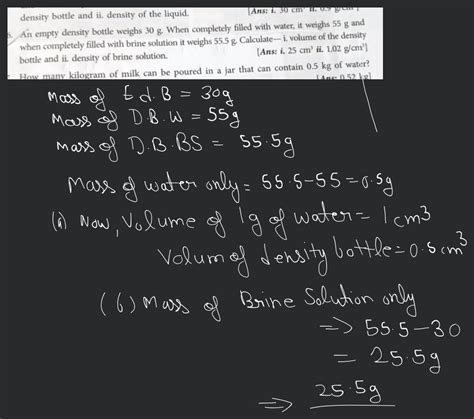 density bottle and ii. density of the liquid.
[Ans: i. 30 cm³ ii. 0.9 g/cm³]
5. An empty density bottle weighs 30 g. When completely filled with water, it weighs 55 g and
when completely filled with brine solution it weighs 55.5 g. Calculate— i. volume of the density
bottle and ii. density of brine solution.
[Ans: i. 25 cm³ ii. 1.02 g/cm³]
How many kilogram of milk can be poured in a jar that can contain 0.5 kg of water?
[Ans: 0.52 kg]
Mass of E.d.B = 30g
Mass of D.B.W = 55g
Mass of D.B.BS = 55.5g
Mass of water only = 55.5-55 = 0.5g
(a) Now, Volume of 1g of water = 1cm3
Volum of density bottle = 0.5cm3
(b) Mass of Brine Solution only
=> 55.5-30
= 25.5g
=> 25.5g